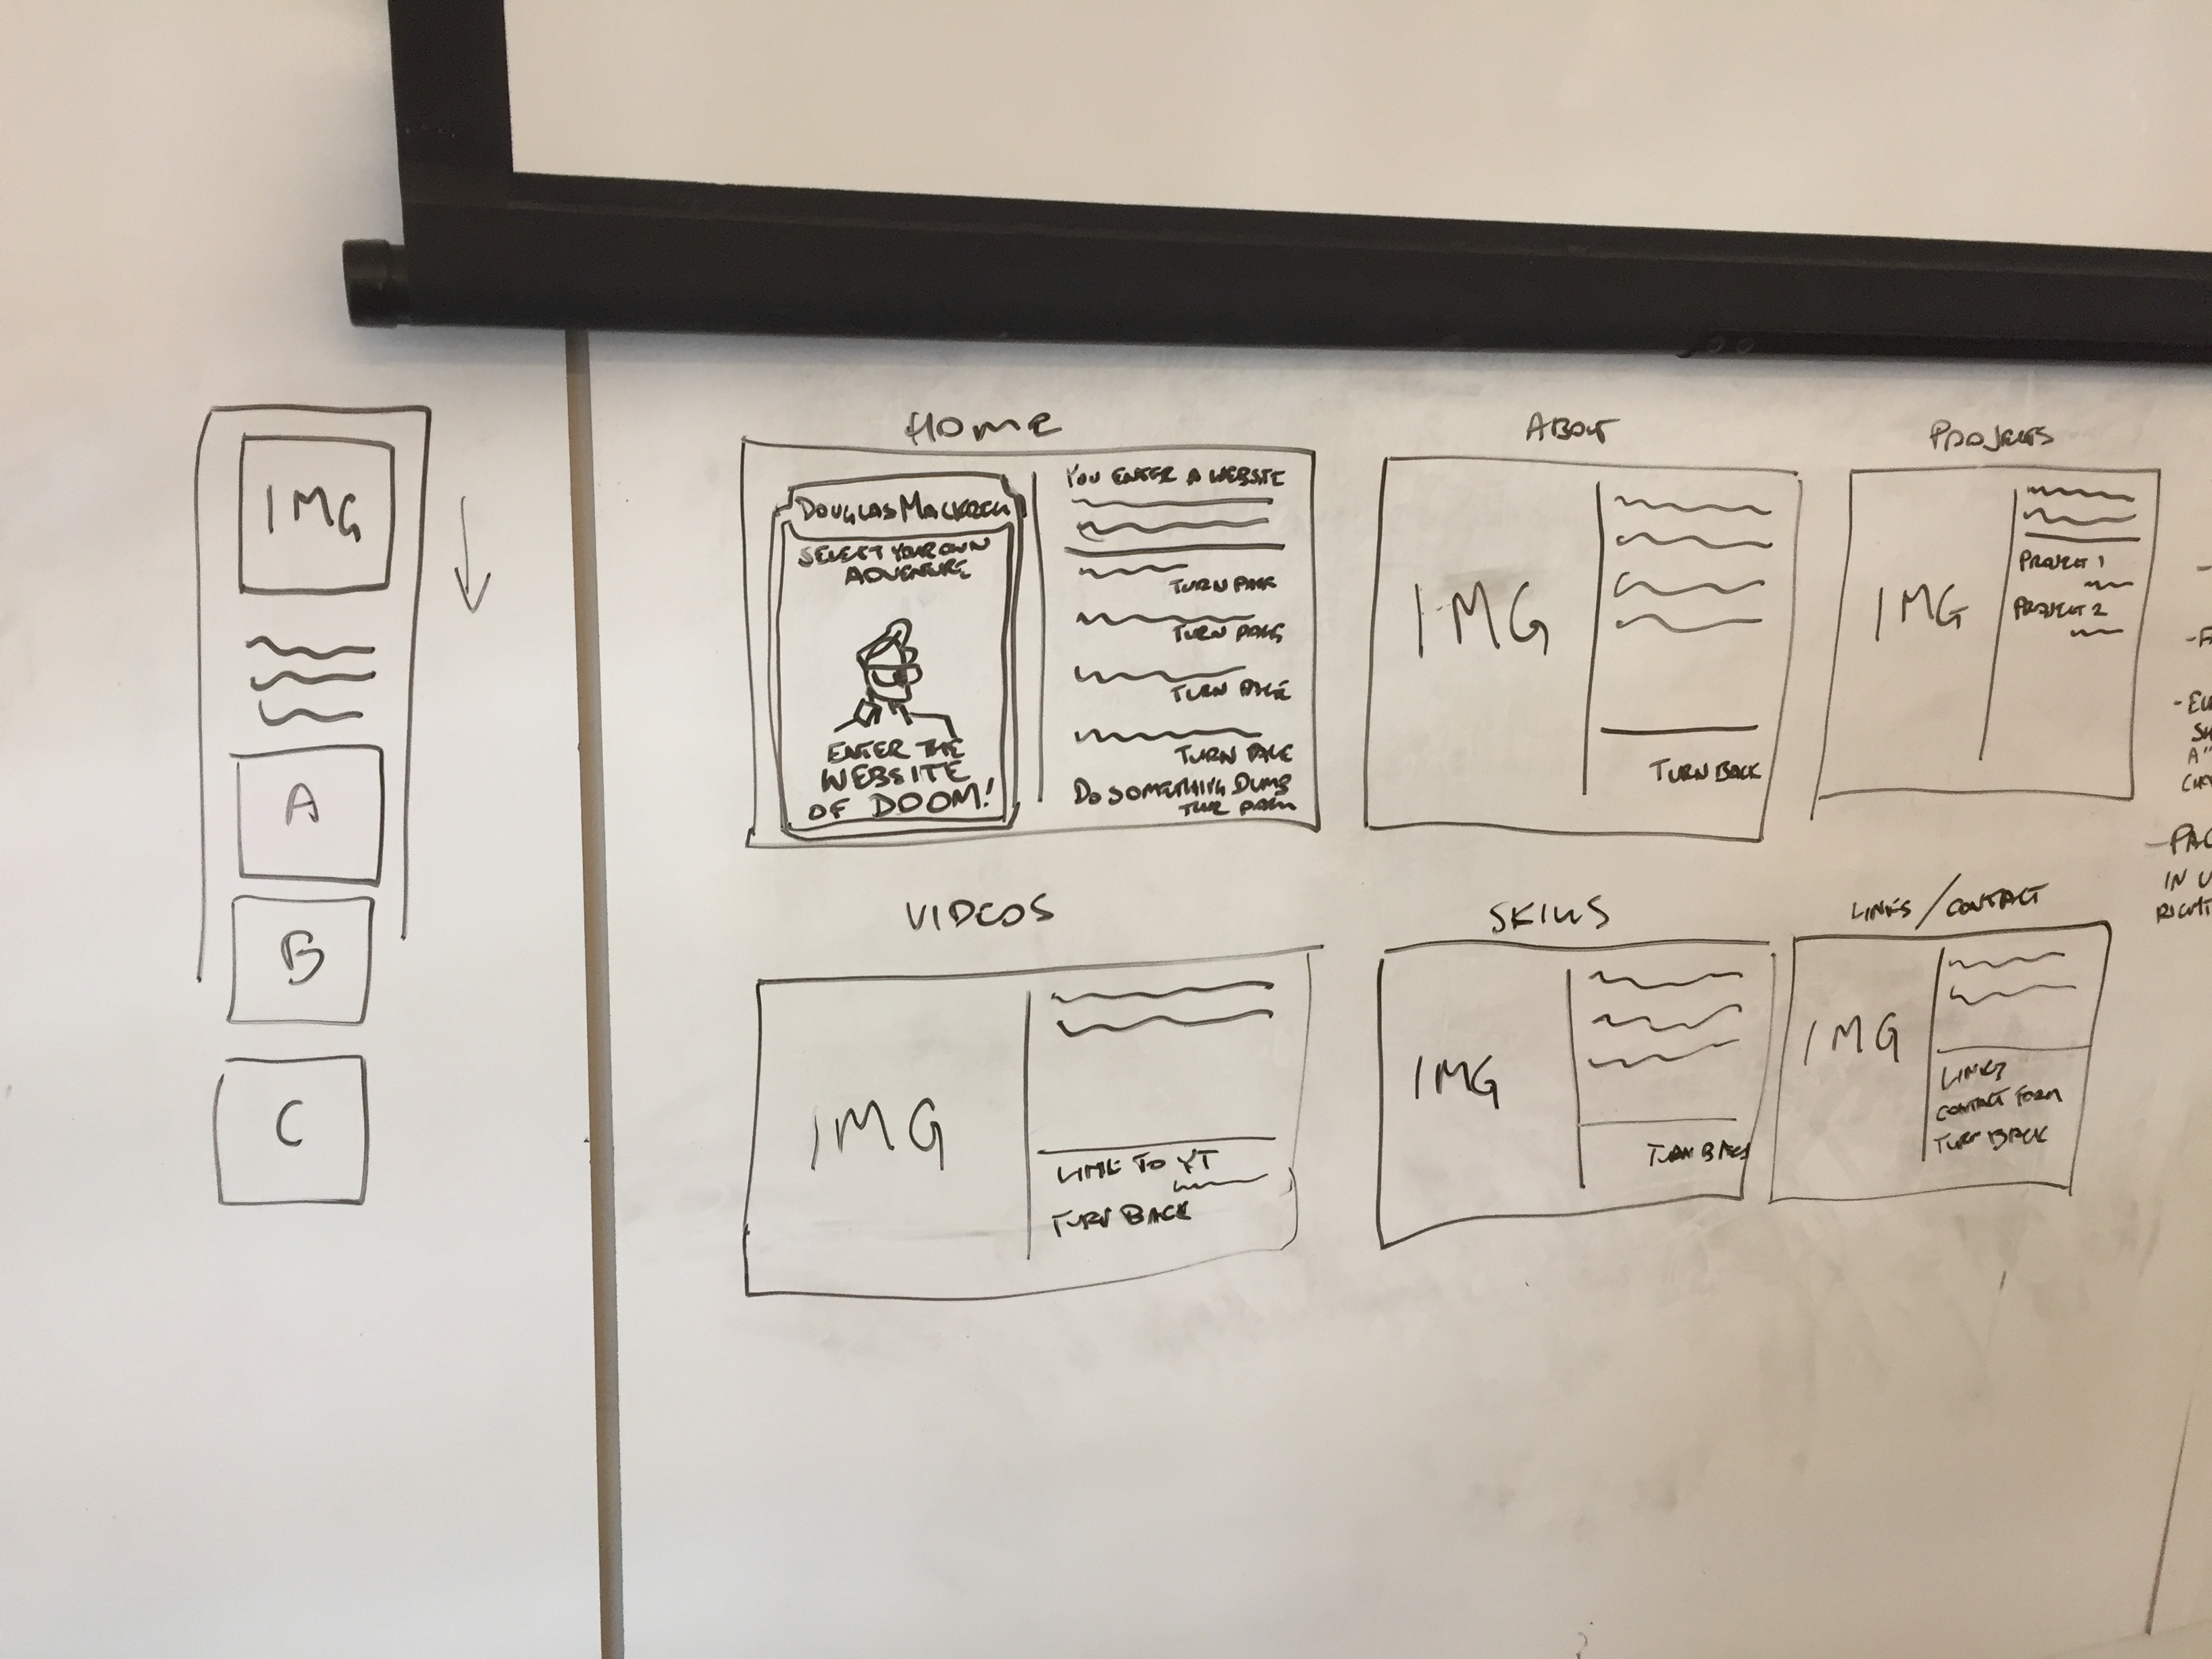 IMG
A
B
C
HOME
DOUGLAS
SELECT YOUR OWN
ADVENTURE
ENTER THE
WEBSITE
OF DOOM!
YOU ENTER A WEBSITE
TURN PAGE
TURN PAGE
TURN PAGE
TURN PAGE
DO SOMETHING DUMB
TURN PAGE
ABOUT
IMG
TURN BACK
PROJECTS
IMG
PROJECT 1
PROJECT 2
VIDEOS
IMG
LINK TO YT
TURN BACK
SKILLS
IMG
TURN BACK
LINKS / CONTACT
IMG
LINKS
CONTACT FORM
TURN BACK
IN